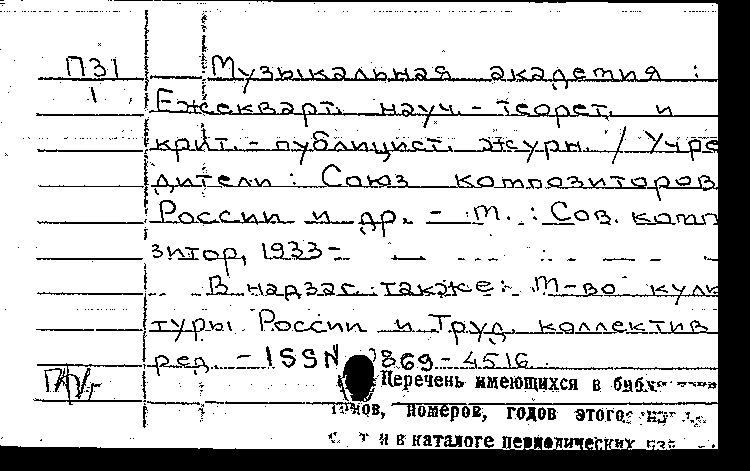 П31 Музыкальная академия :
1 Ежекварт. науч.- теорет. и
крит.- публицист. журн. / Учре
дители : Союз композиторов
России и др. - М. : Сов. комп
зитор, 1933-
В надзаг. также: М-во куль
туры России и Труд. коллектив
ред. - ISSN 869-4516
Перечень имеющихся в
номеров, годов этого
и в каталоге периодических